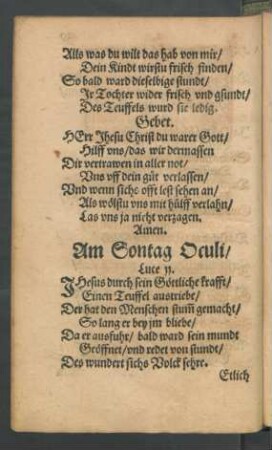 Alls was du wilt das hab von mir/
Dein Kindt wirstu frisch finden/
So bald ward dieselbige stundt/
Ir Tochter wider frisch vnd gsundt/
Des Teuffels wurd sie ledig.
Gebet.
HErr Jhesu Christ du warer Gott/
Hilff vns/das wir dermassen
Dir vertrawen in aller not/
Vns vff dein güt verlassen/
Vnd wenn sichs offt lest sehen an/
Als wölstu vns mit hülff verlahn/
Las vns ja nicht verzagen.
Amen.
Am Sontag Oculi/
Luce 11.
JHesus durch sein Göttliche krafft/
Einen Teuffel austriebe/
Der hat den Menschen stum̃ gemacht/
So lang er bey jm bliebe/
Da er ausfuhr/ bald ward sein mundt
Geöffnet/vnd redet von stundt/
Des wundert sichs Volck sehre.
Etlich